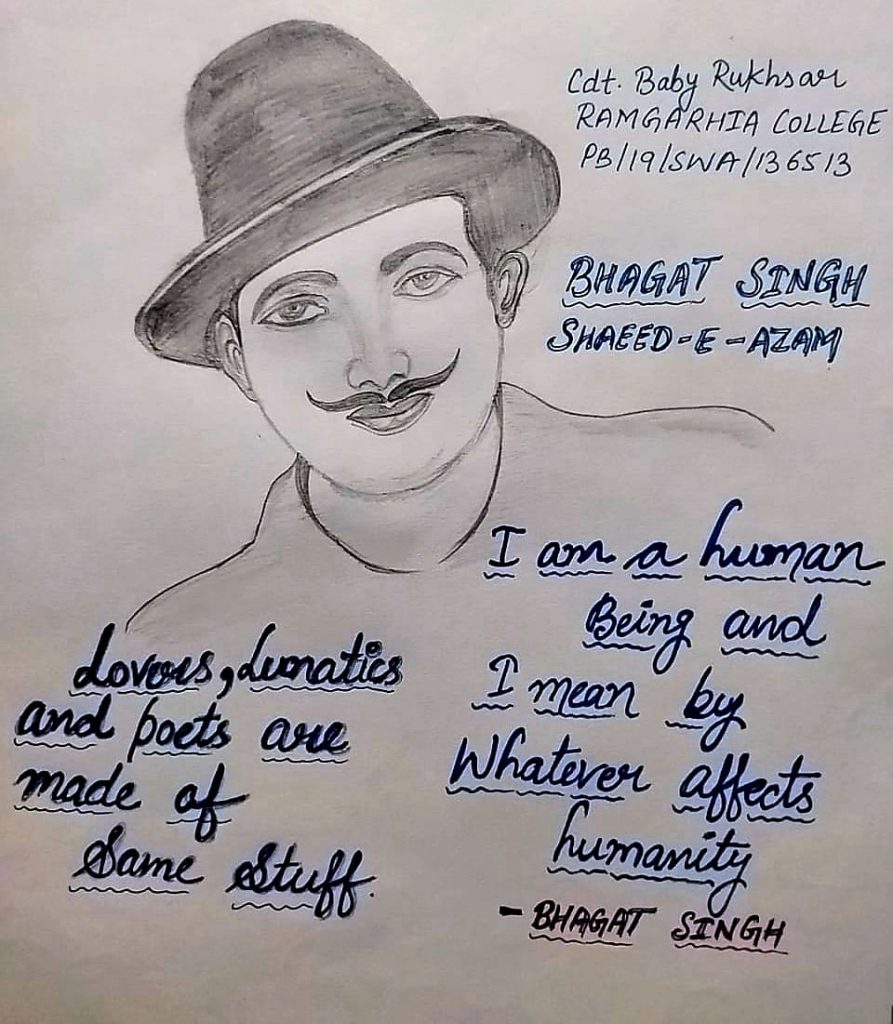 Cdt. Baby Rukhsar
RAMGARHIA COLLEGE
PB/19/SWA/136513
BHAGAT SINGH
SHAEED-E-AZAM
Lovers, Lunatics
and poets are
made of
Same Stuff.
I am a human
Being and
I mean by
Whatever affects
humanity
- BHAGAT SINGH